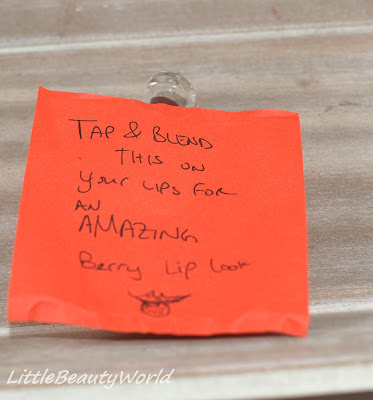 TAP & BLEND
THIS ON
your LIPS FOR
AN
AMAZING
Berry Lip Look
LittleBeautyWorld